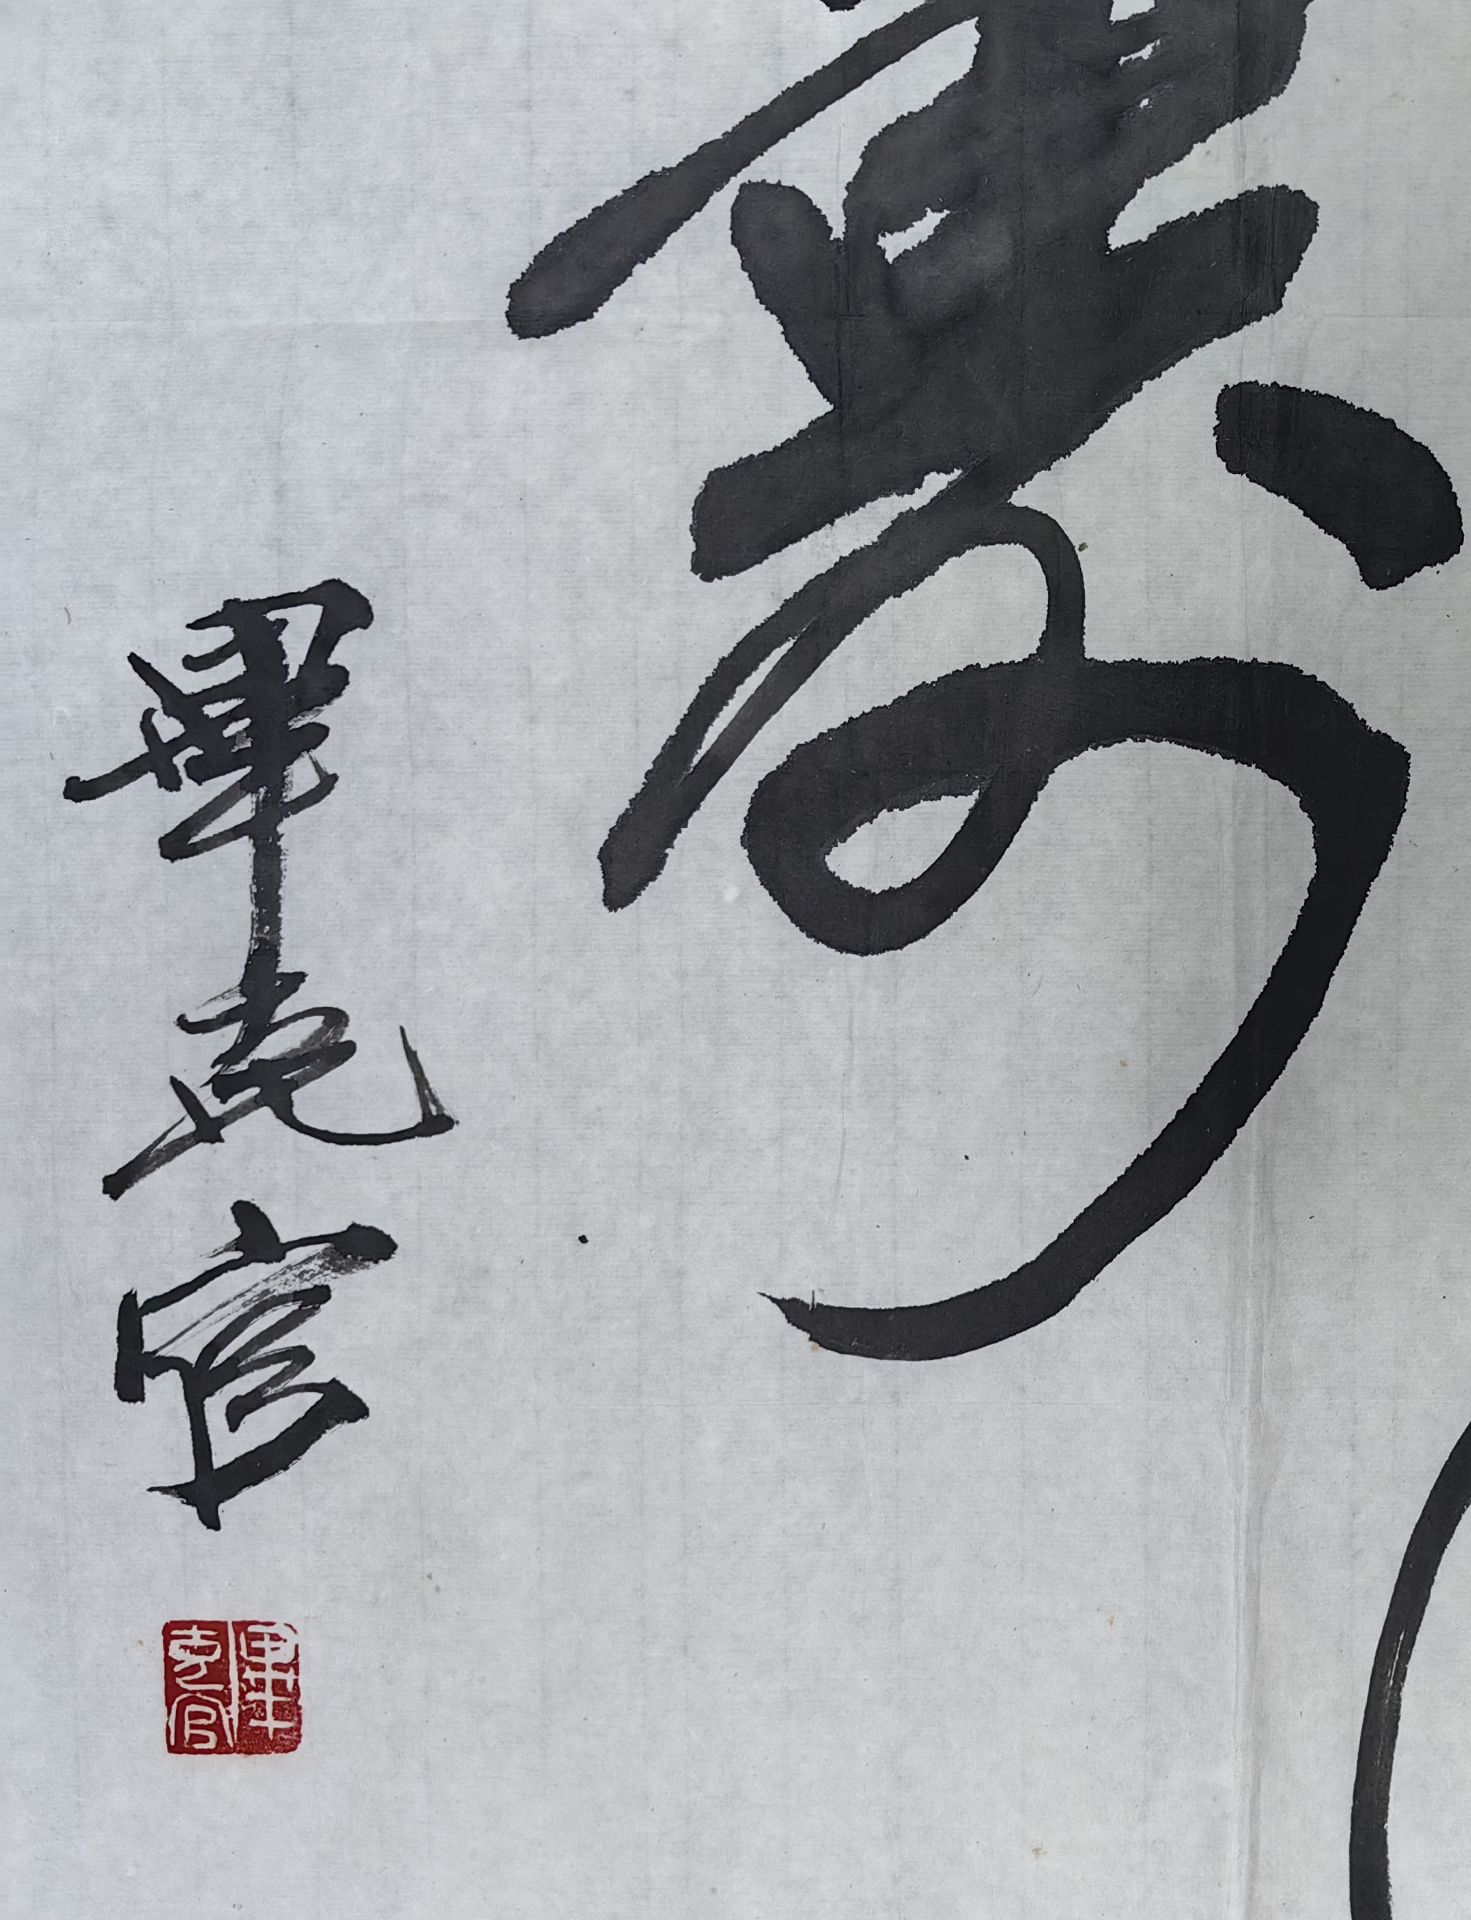 畢克官
畢
克官